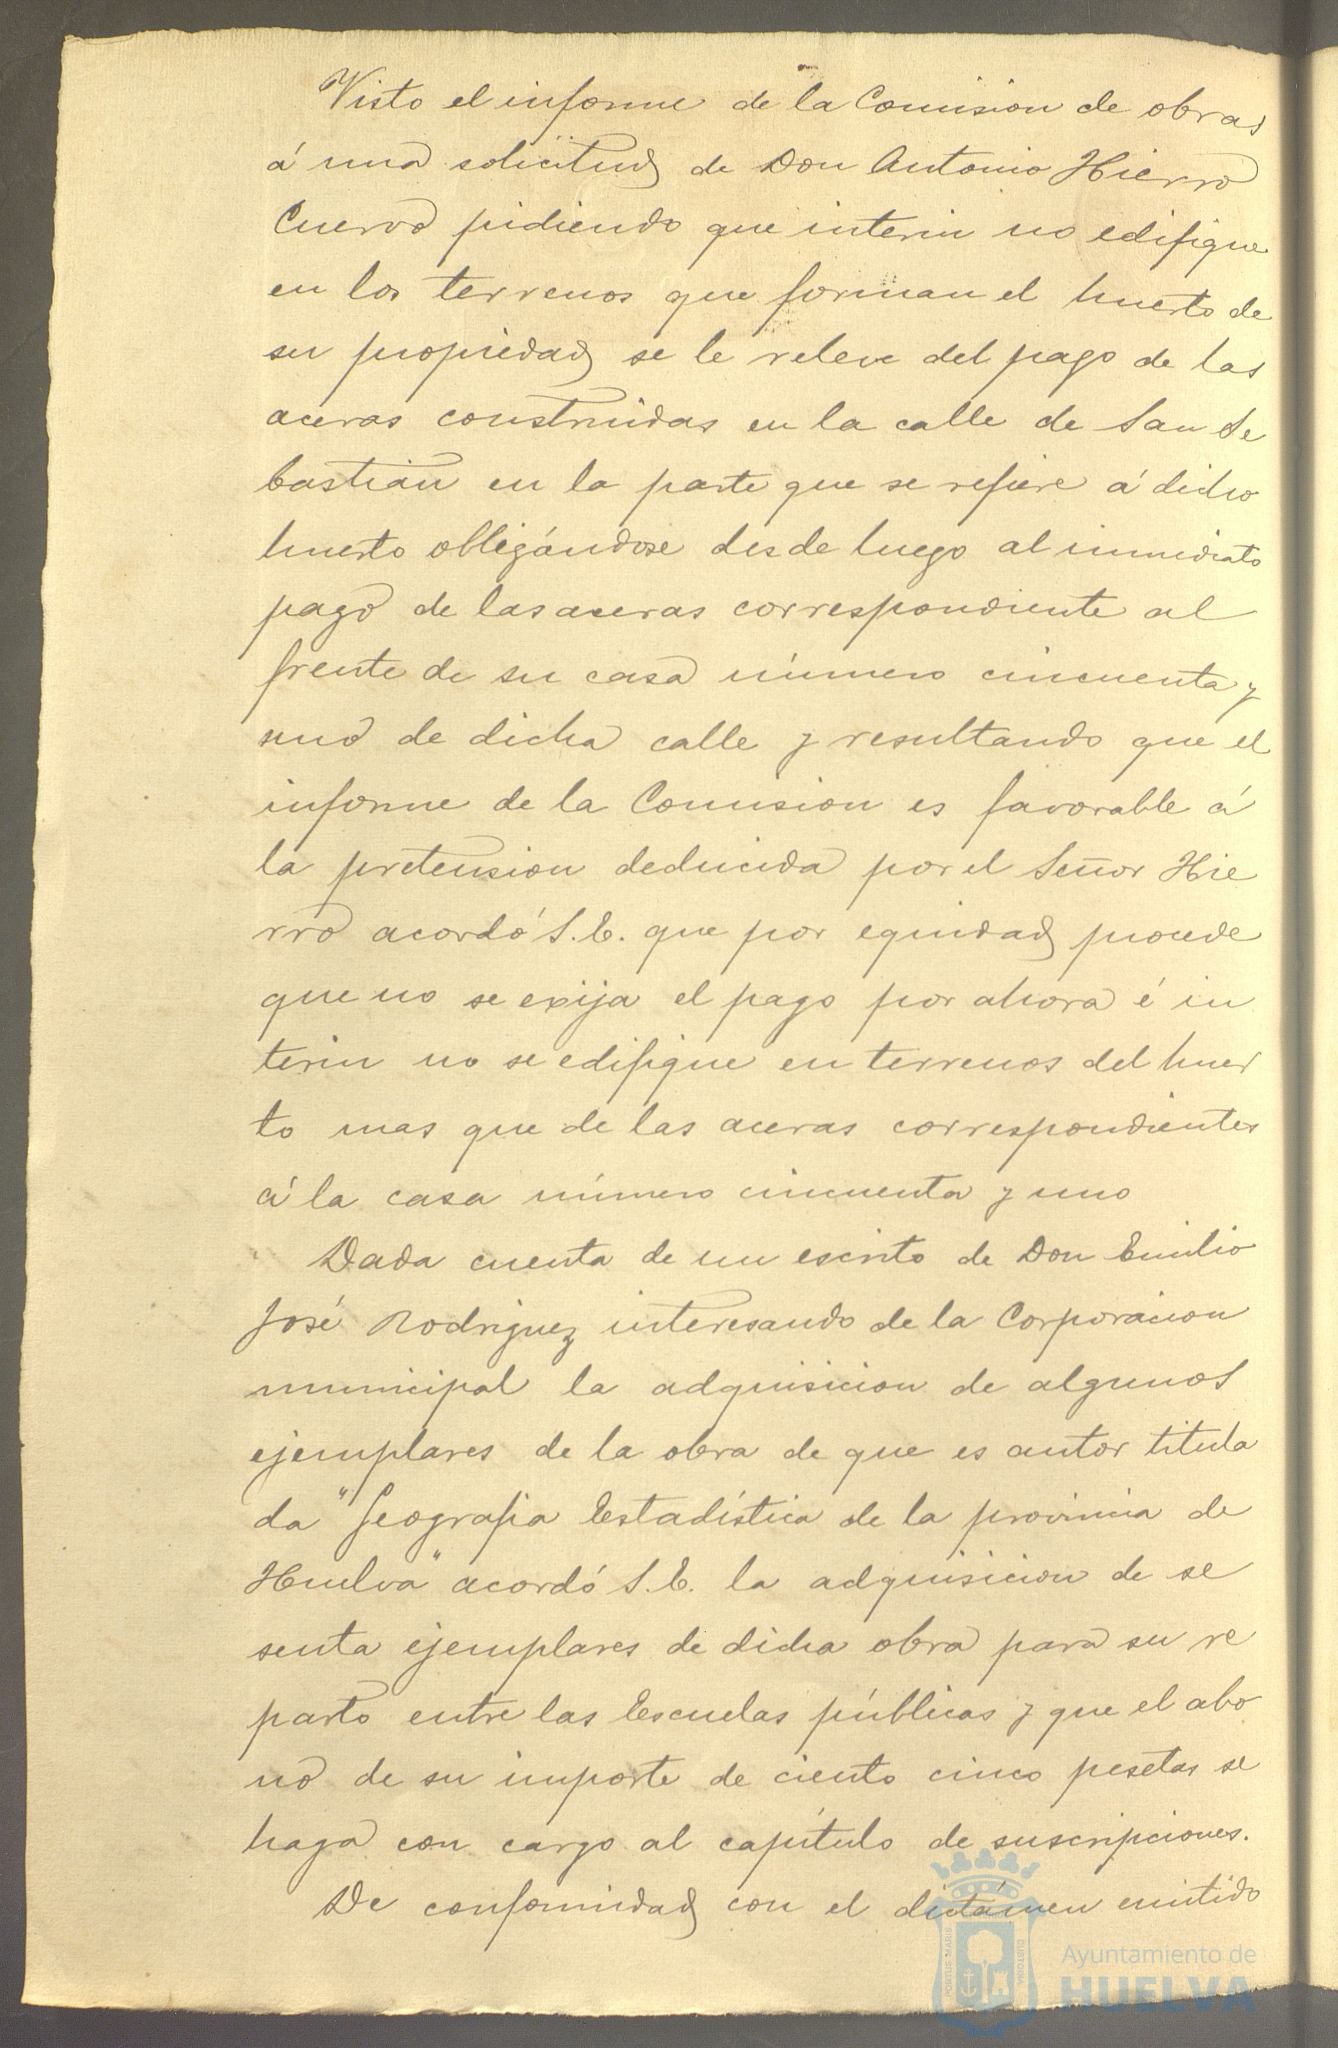 Visto el informe de la Comision de obras
á una solicitud de Don Antonio Hierro
Cuervo pidiendo que interin no edifique
en los terrenos que forman el huerto de
su propiedad se le releve del pago de las
aceras construidas en la calle de San Se
bastián en la parte que se refiere á dicho
huerto obligándose desde luego al inmediato
pago de las aceras correspondiente al
frente de su casa número cincuenta y
uno de dicha calle y resultando que el
informe de la Comision es favorable á
la pretension deducida por el Señor Hie
rro acordó S.E. que por equidad procede
que no se exija el pago por ahora é in
terin no se edifique en terrenos del huer
to mas que de las aceras correspondientes
á la casa número cincuenta y uno
Dada cuenta de un escrito de Don Emilio
José Rodriguez interesando de la Corporacion
municipal la adquisicion de algunos
ejemplares de la obra de que es autor titula
da "Geografia Estadística de la provincia de
Huelva" acordó S.E. la adquisicion de se
senta ejemplares de dicha obra para su re
parto entre las Escuelas públicas y que el abo
no de su importe de ciento cinco pesetas se
haga con cargo al capítulo de suscripciones.
De conformidad con el dictámen emitido
PORTUS MARIS CUSTODIA
Ayuntamiento de
HUELVA